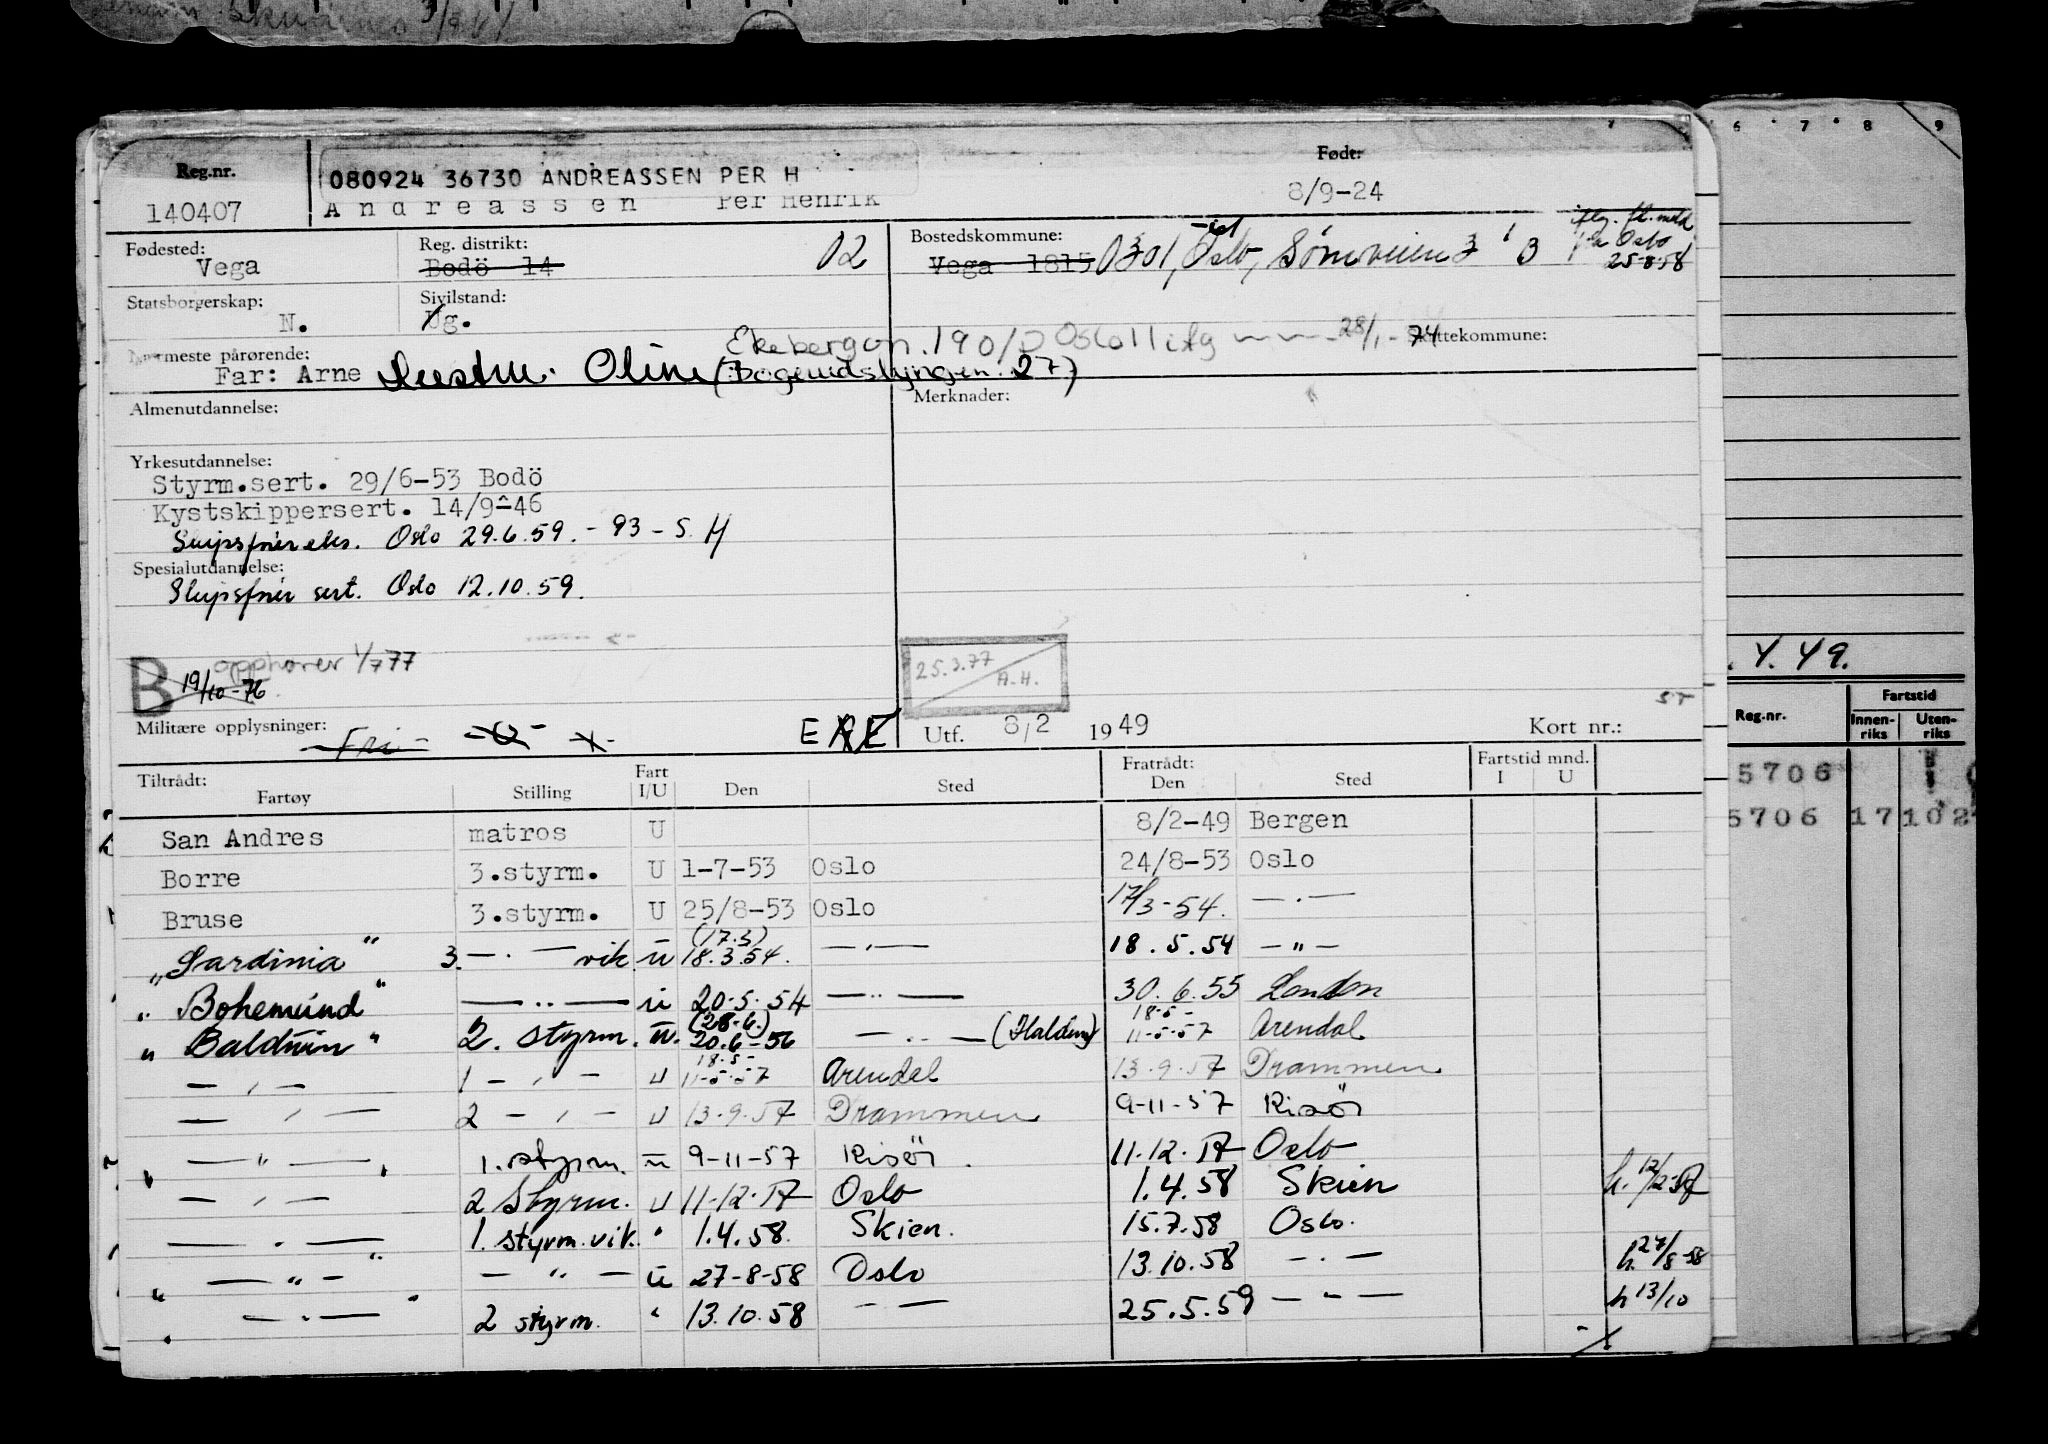 Reg.nr.
080924 36730 ANDREASSEN PER H
Født:
140407
Andreassen Per Henrik
8/9-24
Fødested:
Vega
Reg. distrikt:
Bodö 14
02
Bostedskommune:
Vega 1815 0301, Oslo,
25-8-58
Statsborgerskap:
N.
Sivilstand:
Ug.
190 28/1-74 Skattekommune:
Nærmeste pårørende:
Far: Arne Oline
Almenutdannelse:
Merknader:
Yrkesutdannelse:
Styrm.sert. 29/6-53 Bodö
Kystskippersert. 14/9-46
Oslo 29.6.59. - 93 - S. H
Spesialutdannelse:
Skipsfører sert. Oslo 12.10.59.
opphører 1/7 77
B 19/10-76
25.3.77
A.H.
Militære opplysninger:
Fri
Utf. 8/2 1949
Kort nr.:
Tiltrådt:
Fartøy Stilling Fart I/U Den Sted Fratrådt: Den Sted Fartstid mnd. I U
San Andres matros U 8/2-49 Bergen
Borre 3.styrm. U 1-7-53 Oslo 24/8-53 Oslo
Bruse 3.styrm. U 25/8-53 Oslo 17/3-54. — . —
„Sardinia" 3. — . — vik. u (17.3) 18.3.54. — , — 18.5.54 — " —
„Bohemund" — .. — u 20.5.54 — .. — 30.6.55 London
„Balduin" 2. styrm. u. (28.6.) 20.6-56 — .. — (Halden) 18-5- 11-5-57 Arendal
— , — 1 — , — u 18-5- 11-5-57 Arendal 13.9.57 Drammen
— , — 2 — , — u 13.9.57 Drammen 9-11-57 Risör
— " — 1. styrm. u 9-11-57 Risör. 11-12-57 Oslo
— , — 2 Styrm. u 11-12-57 Oslo 1.4.58 Skien
— . — 1. styrm. vik. " 1.4.58. Skien. 15.7.58 Oslo.
— " — — " — u 27-8-58 Oslo 13.10.58 — . — h. 27/8-58
— . — 2 styrm. " 13.10.58 — — 25.5.59 — " — h 13/10
6 7 8 9
. 4. 49.
Reg.nr.
Fartstid
Innenriks
Utenriks
5706
5706 17102